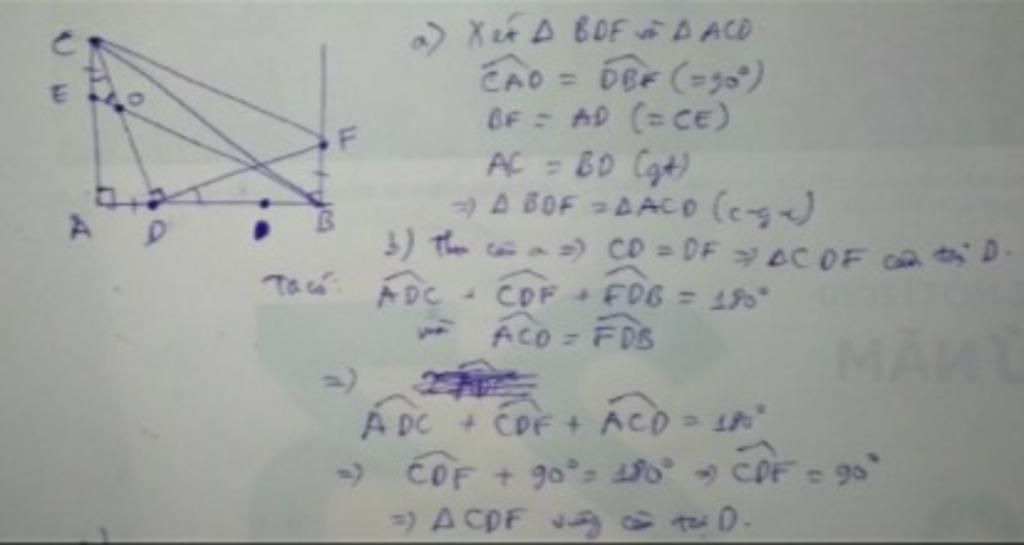 C
E O
F
A D B
a) Xét Δ BDF và Δ ACD
CAD = DBF (=90°)
BF = AD (=CE)
AC = BD (gt)
=> Δ BDF = Δ ACD (c-g-c)
b) Theo câu a => CD = DF => ΔCDF cân tại D.
Ta có: ADC + CDF + FDB = 180°
mà ACD = FDB
=>
ADC + CDF + ACD = 180°
=> CDF + 90° = 180° => CDF = 90°
=> Δ CDF vuông cân tại D.
Ử NĂM